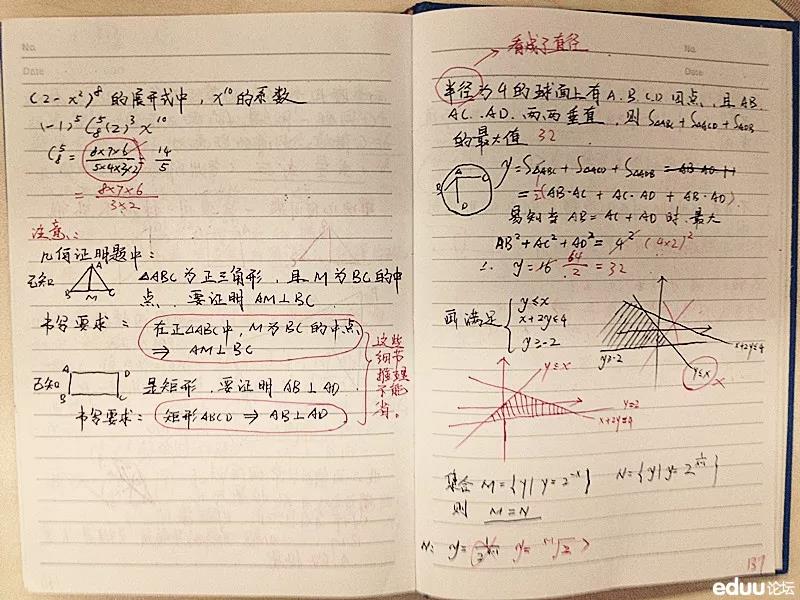 No.
Date
(2-x²)⁸ 的展开式中, x¹⁰ 的系数
(-1)⁵ C₈⁵(2)³ x¹⁰
C₈⁵ = 8×7×6 / 5×4×3×2 = 14/5
= 8×7×6 / 3×2
注意:
几何证明题中:
已知 A B M C △ABC 为正三角形, 且 M 为 BC 的中
点, 要证明 AM⊥BC
书写要求: 在正△ABC中, M 为 BC 的中点
⇒ AM⊥BC
已知 A B C D 是矩形, 要证明 AB⊥AD
书写要求: 矩形 ABCD ⇒ AB⊥AD
这些
细节
推理
不能
省。
看成了直径
No.
Date
半径为 4 的球面上有 A.B.C.D 四点, 且 AB.
AC. AD. 两两垂直, 则 S△ABC + S△ACD + S△ADB
的最大值 32
A B C D y = S△ABC + S△ACD + S△ADB =
= ½(AB·AC + AC·AD + AB·AD)
易知当 AB = AC + AD 时 最大
AB² + AC² + AD² = 4² (4×2)²
∴ y = 16 64/2 = 32
画满足 { y≤x
x+2y≤4
y≥-2
y≥-2 y≤x x+2y≤4
y≤x
y=2
x+2y≤4
集合 M = {y| y = 2⁻ˣ} N = {y| y =
则 M = N
N: y =
137
eduu论坛